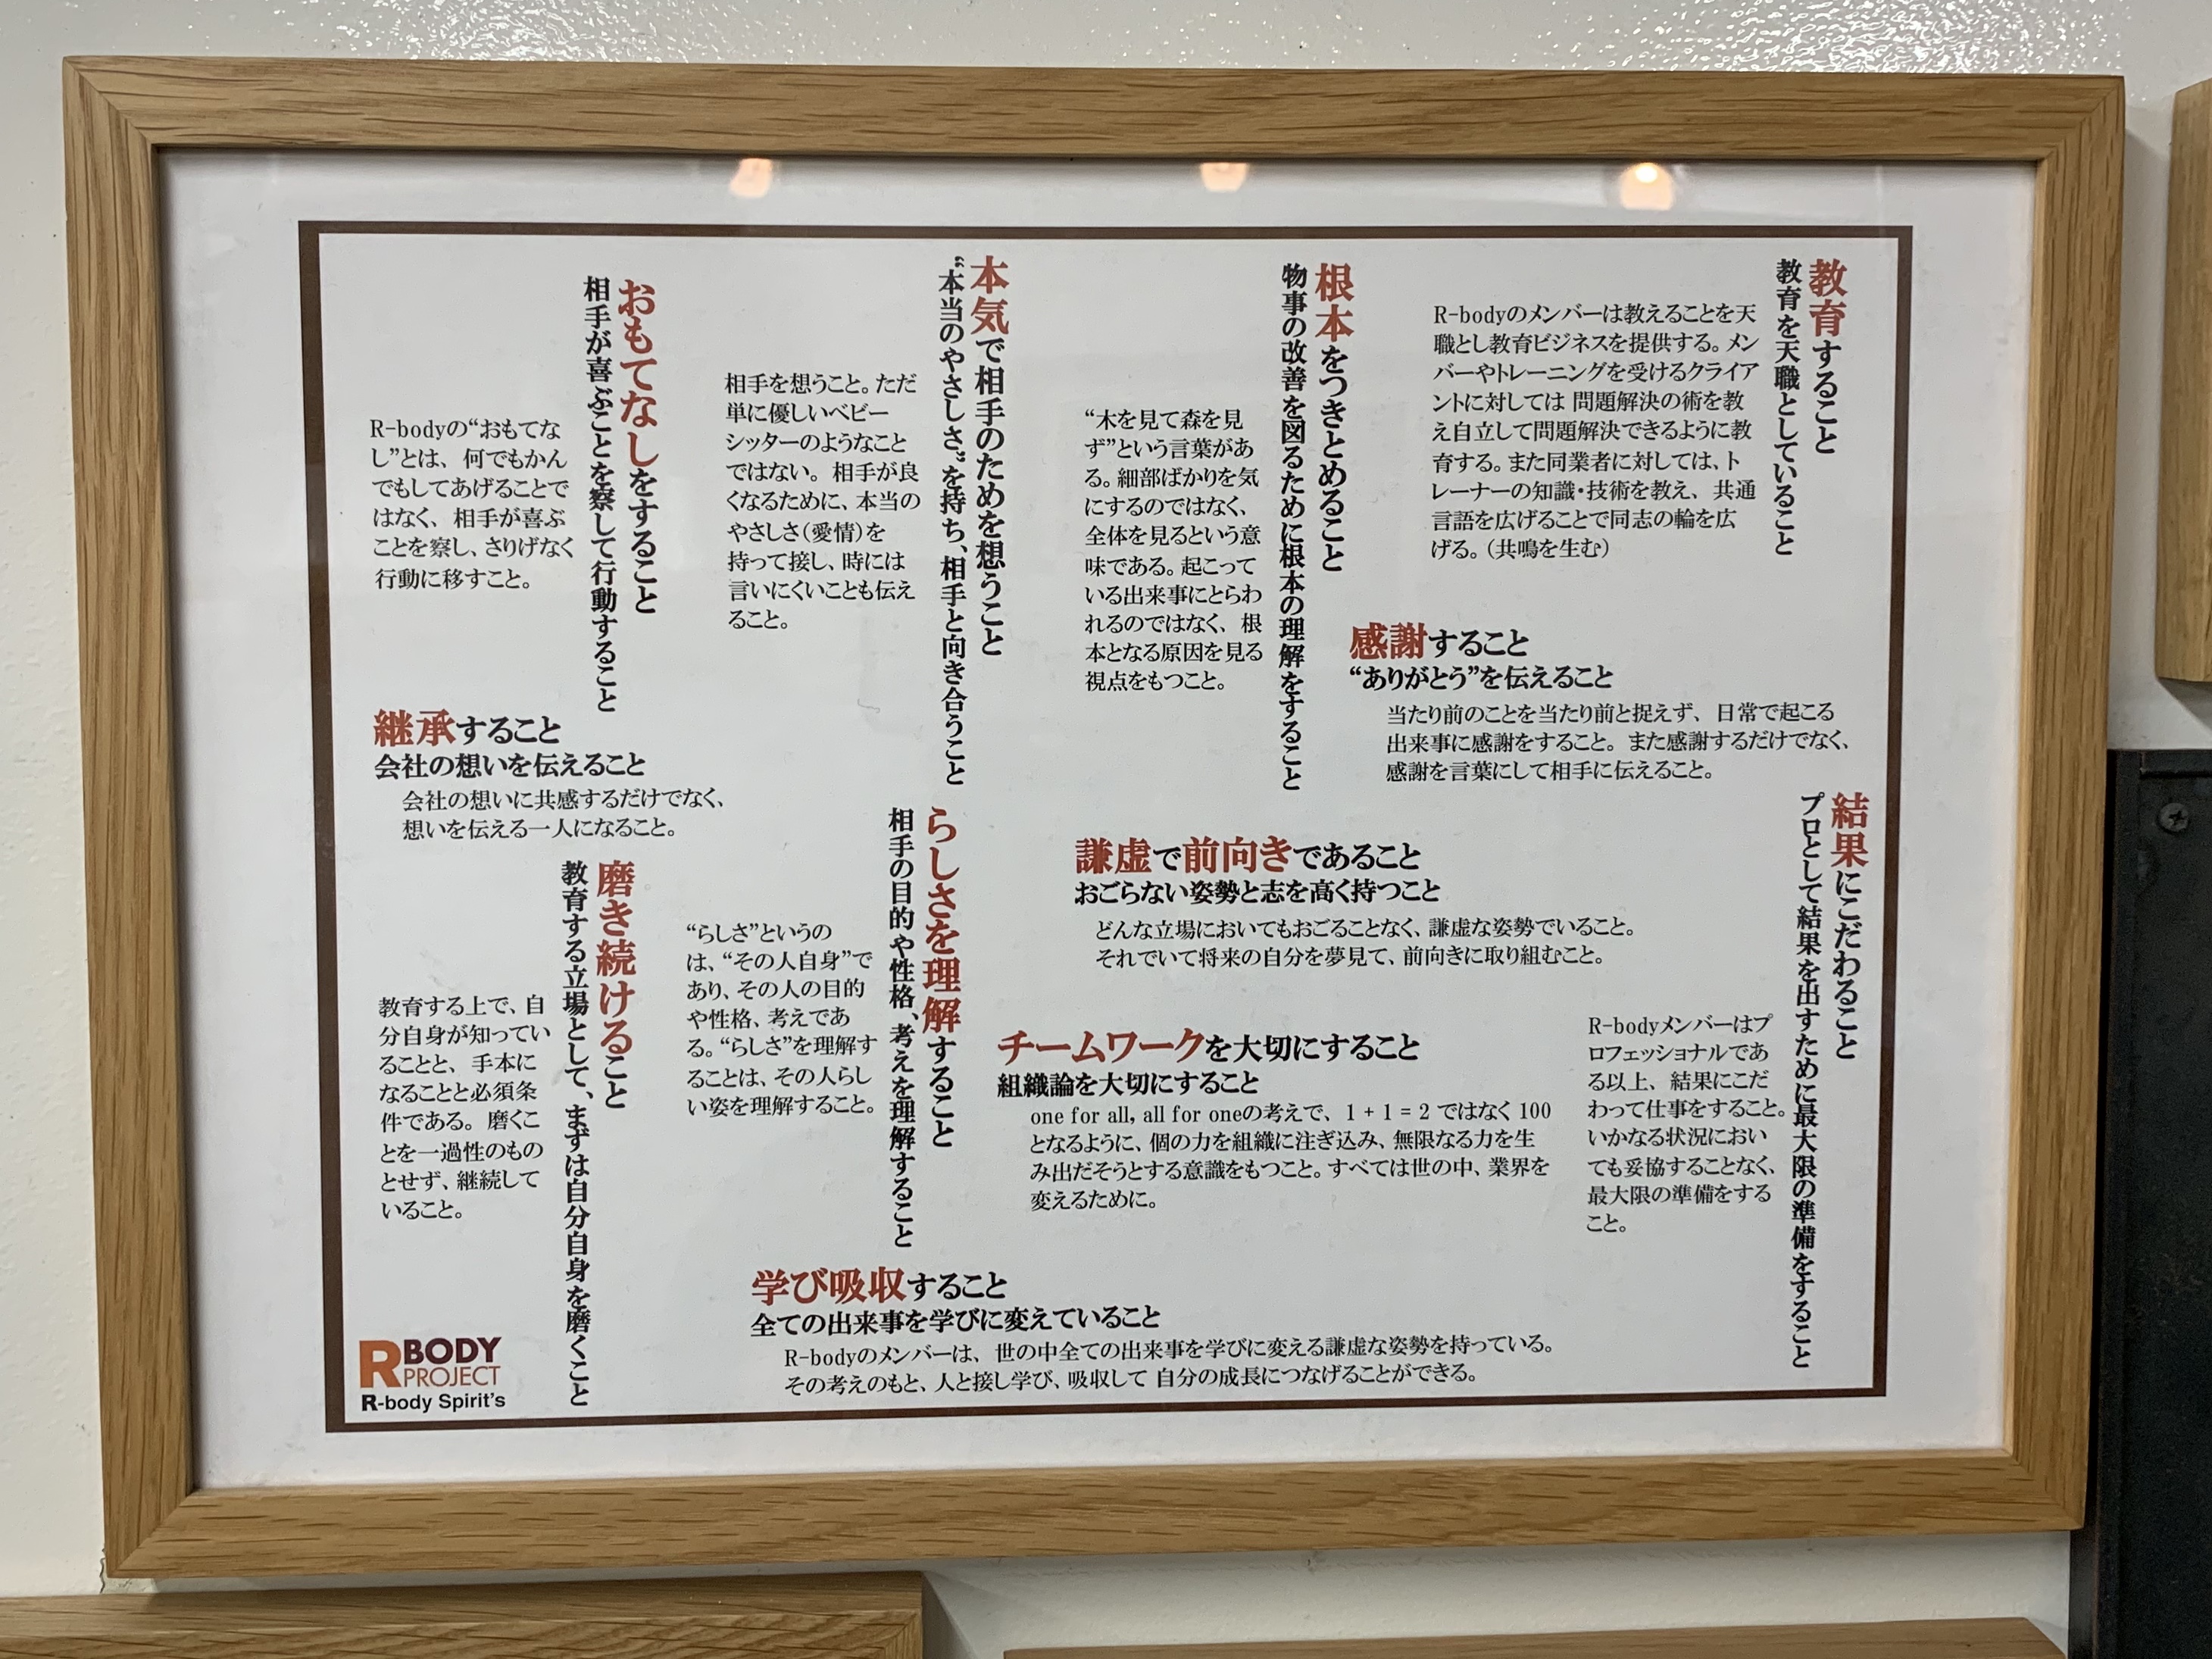 教育すること
教育を天職としていること
R-bodyのメンバーは教えることを天
職とし教育ビジネスを提供する。メン
バーやトレーニングを受けるクライア
ントに対しては 問題解決の術を教
え自立して問題解決できるように教
育する。また同業者に対しては、ト
レーナーの知識・技術を教え、共通
言語を広げることで同志の輪を広
げる。（共鳴を生む）
根本をつきとめること
物事の改善を図るために根本の理解をすること
“木を見て森を見
ず”という言葉があ
る。細部ばかりを気
にするのではなく、
全体を見るという意
味である。起こって
いる出来事にとらわ
れるのではなく、根
本となる原因を見る
視点をもつこと。
本気で相手のためを想うこと
“本当のやさしさ”を持ち、相手と向き合うこと
相手を想うこと。ただ
単に優しいベビー
シッターのようなこと
ではない。相手が良
くなるために、本当の
やさしさ（愛情）を
持って接し、時には
言いにくいことも伝え
ること。
おもてなしをすること
相手が喜ぶことを察して行動すること
R-bodyの“おもてな
し”とは、何でもかん
でもしてあげることで
はなく、相手が喜ぶ
ことを察し、さりげなく
行動に移すこと。
感謝すること
“ありがとう”を伝えること
当たり前のことを当たり前と捉えず、日常で起こる
出来事に感謝をすること。また感謝するだけでなく、
感謝を言葉にして相手に伝えること。
継承すること
会社の想いを伝えること
会社の想いに共感するだけでなく、
想いを伝える一人になること。
結果にこだわること
プロとして結果を出すために最大限の準備をすること
R-bodyメンバーはプ
ロフェッショナルであ
る以上、結果にこだ
わって仕事をすること。
いかなる状況におい
ても妥協することなく、
最大限の準備をする
こと。
謙虚で前向きであること
おごらない姿勢と志を高く持つこと
どんな立場においてもおごることなく、謙虚な姿勢でいること。
それでいて将来の自分を夢見て、前向きに取り組むこと。
チームワークを大切にすること
組織論を大切にすること
one for all, all for oneの考えで、1 + 1 = 2 ではなく 100
となるように、個の力を組織に注ぎ込み、無限なる力を生
み出だそうとする意識をもつこと。すべては世の中、業界を
変えるために。
らしさを理解すること
相手の目的や性格、考えを理解すること
“らしさ”というの
は、“その人自身”で
あり、その人の目的
や性格、考えであ
る。“らしさ”を理解す
ることは、その人らし
い姿を理解すること。
磨き続けること
教育する立場として、まずは自分自身を磨くこと
教育する上で、自
分自身が知ってい
ることと、手本に
なることと必須条
件である。磨くこ
とを一過性のもの
とせず、継続して
いること。
学び吸収すること
全ての出来事を学びに変えていること
R-bodyのメンバーは、世の中全ての出来事を学びに変える謙虚な姿勢を持っている。
その考えのもと、人と接し学び、吸収して 自分の成長につなげることができる。
R BODY
PROJECT
R-body Spirit's